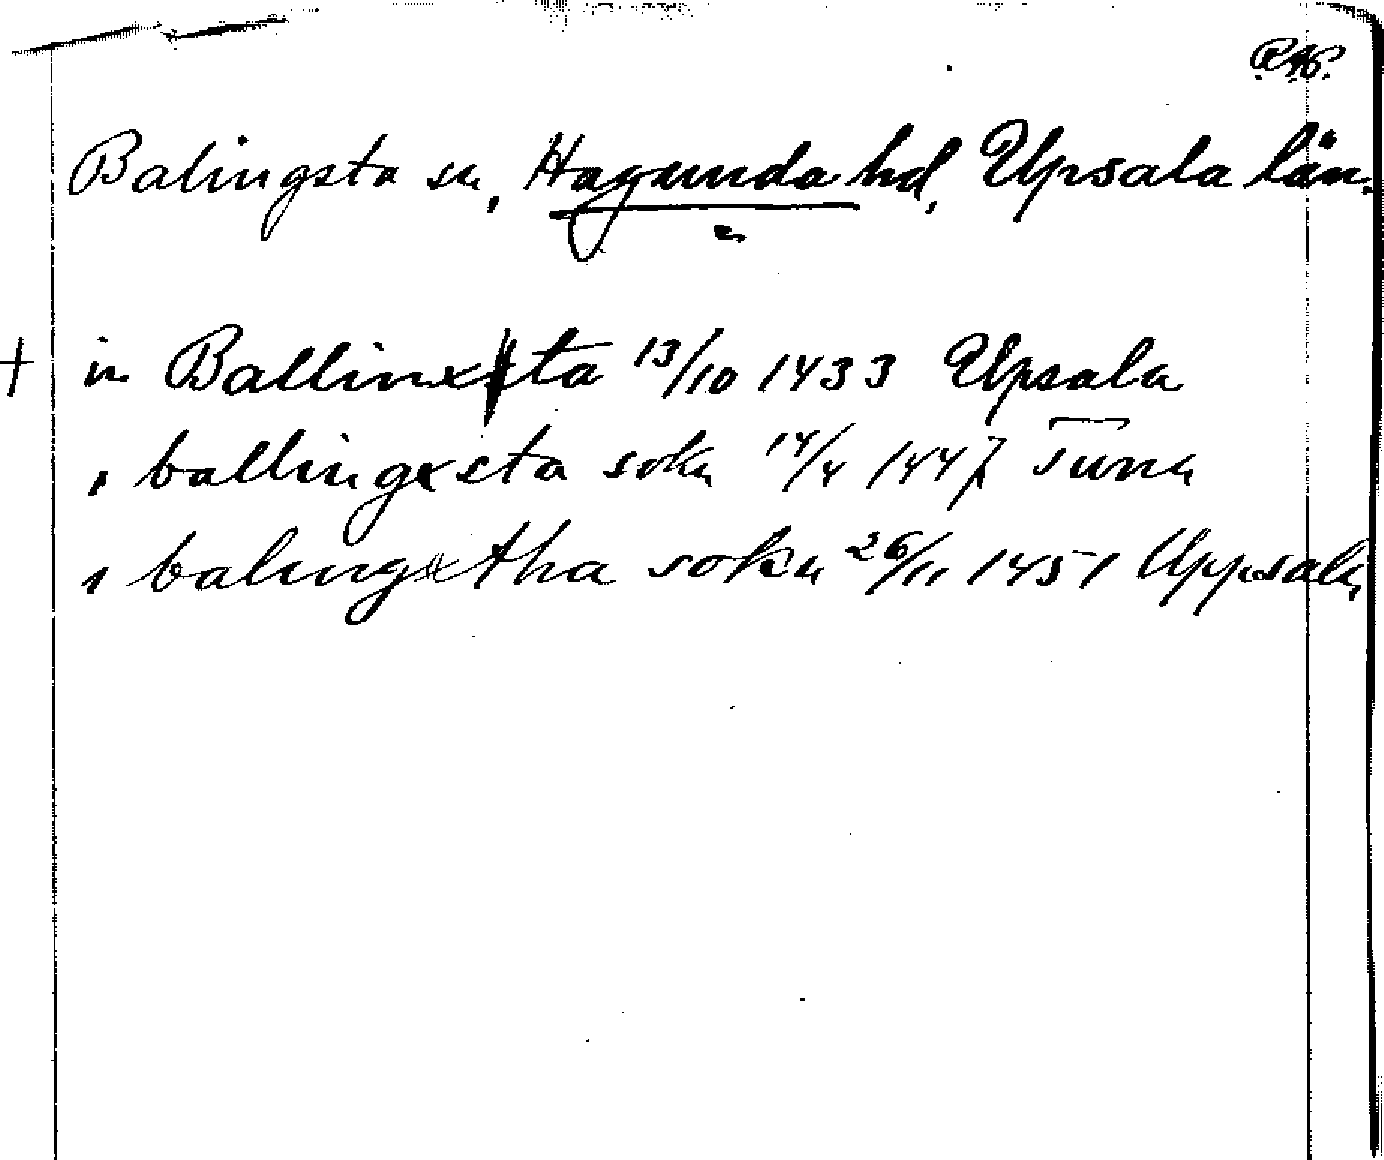 RAP.
Balingsta sn, Hagunda hd, Upsala län.
+ in Ballinxsta 13/10 1433 Upsala
, ballingxsta sokn 14/4 1447 Tuna
, balingxtha sokn 26/11 1451 Uppsala